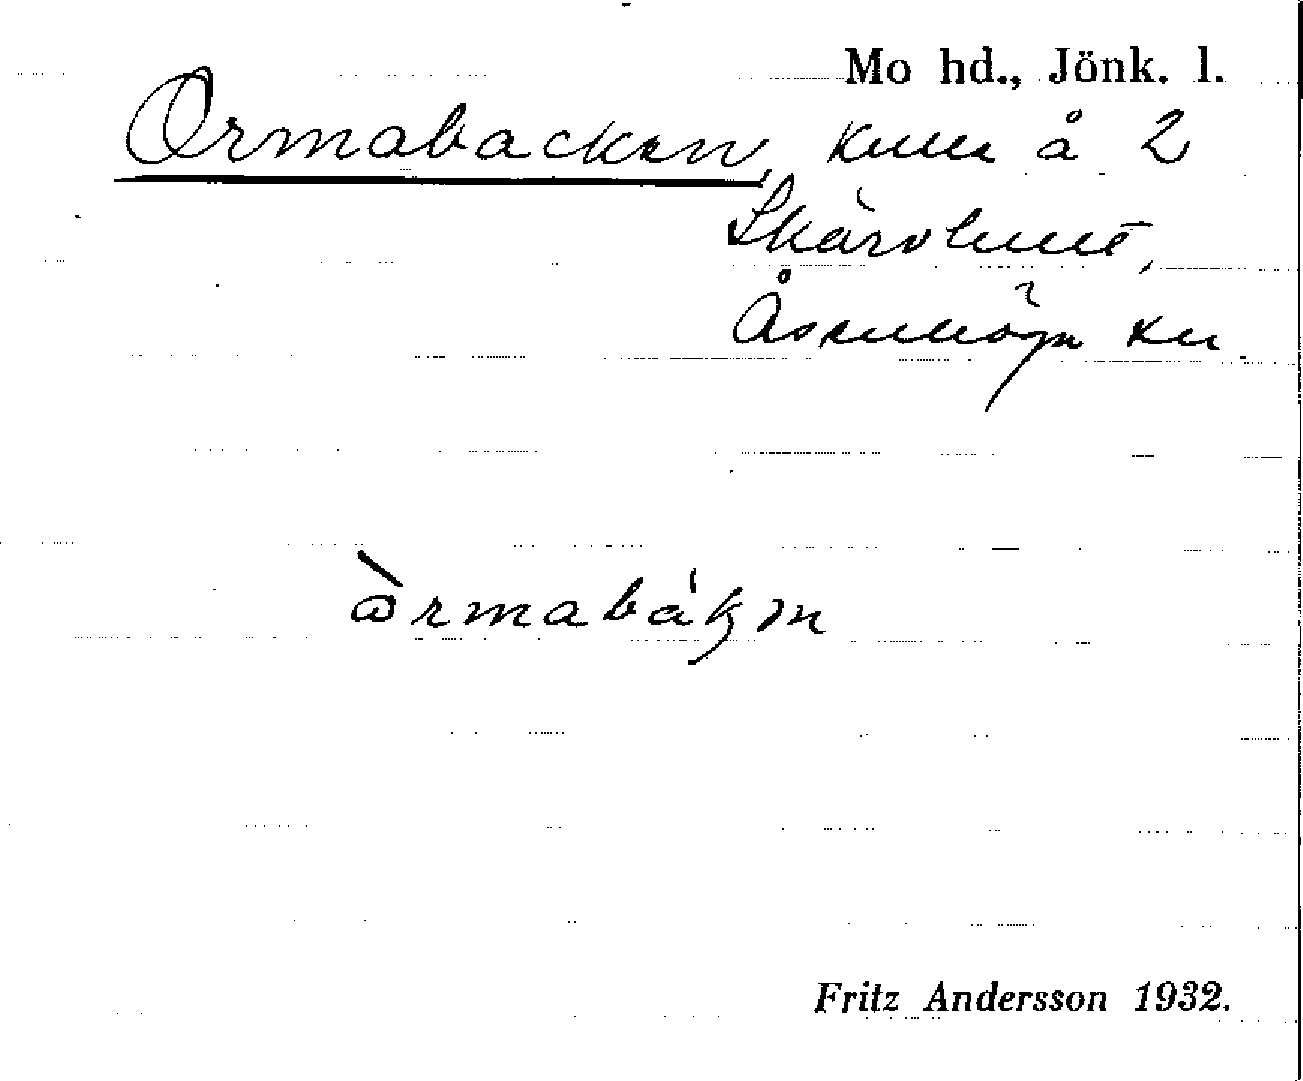 Mo hd., Jönk. l.
Ormabacken, kulle å 2
Skärvhult,
Åsenhöga sn
òrmabákən
Fritz Andersson 1932.